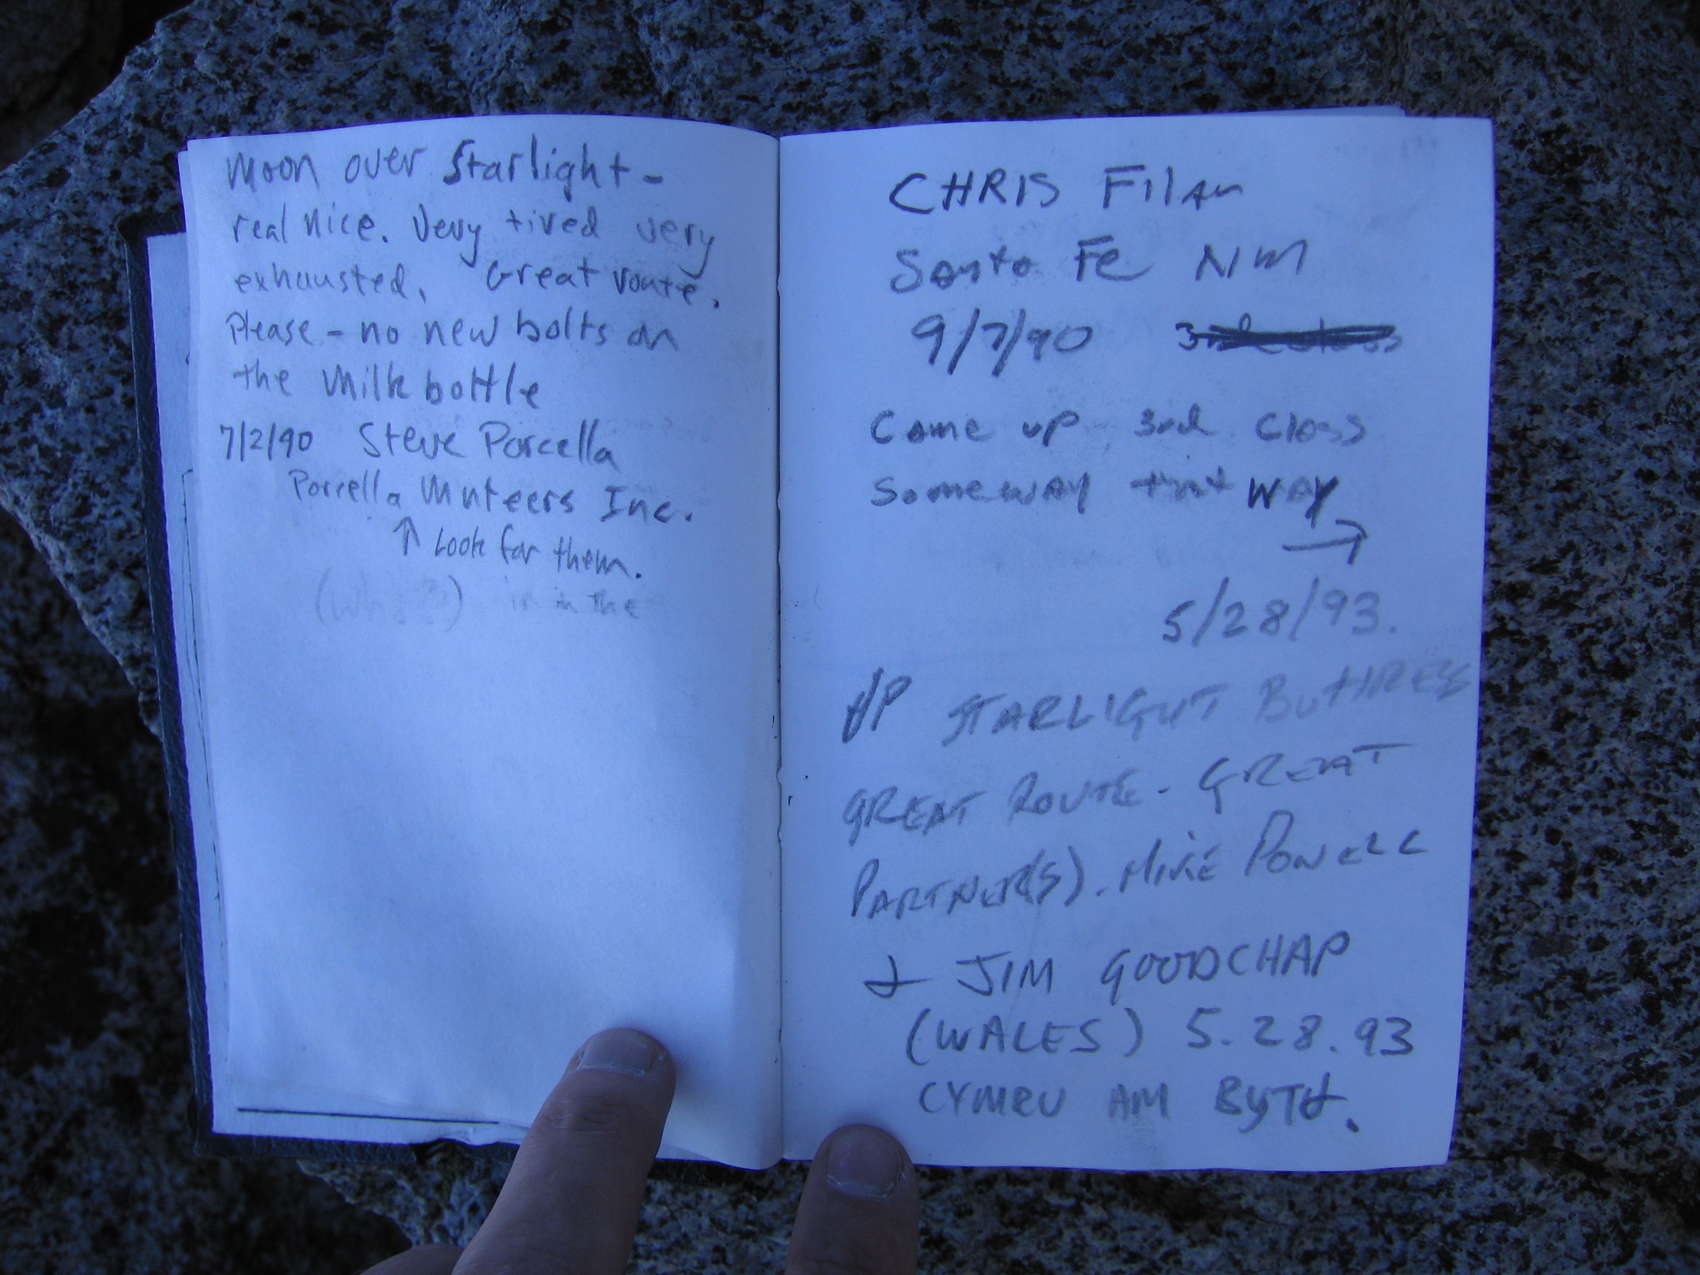 Moon over Starlight -
real nice. Very tired very
exhausted. Great route.
Please - no new bolts on
the Milk bottle
7/2/90 Steve Porcella
Porcella Muteers Inc.
↑ Look for them.
in the
CHRIS Filam
Santa Fe NM
9/7/90
Came up 3rd Class
Someway that way
→
5/28/93.
UP STARLIGHT BUTTRESS
GREAT ROUTE - GREAT
PARTNER(S). MIKE POWELL
+ JIM GOODCHAP
(WALES) 5.28.93
CYMRU AM BYTH.